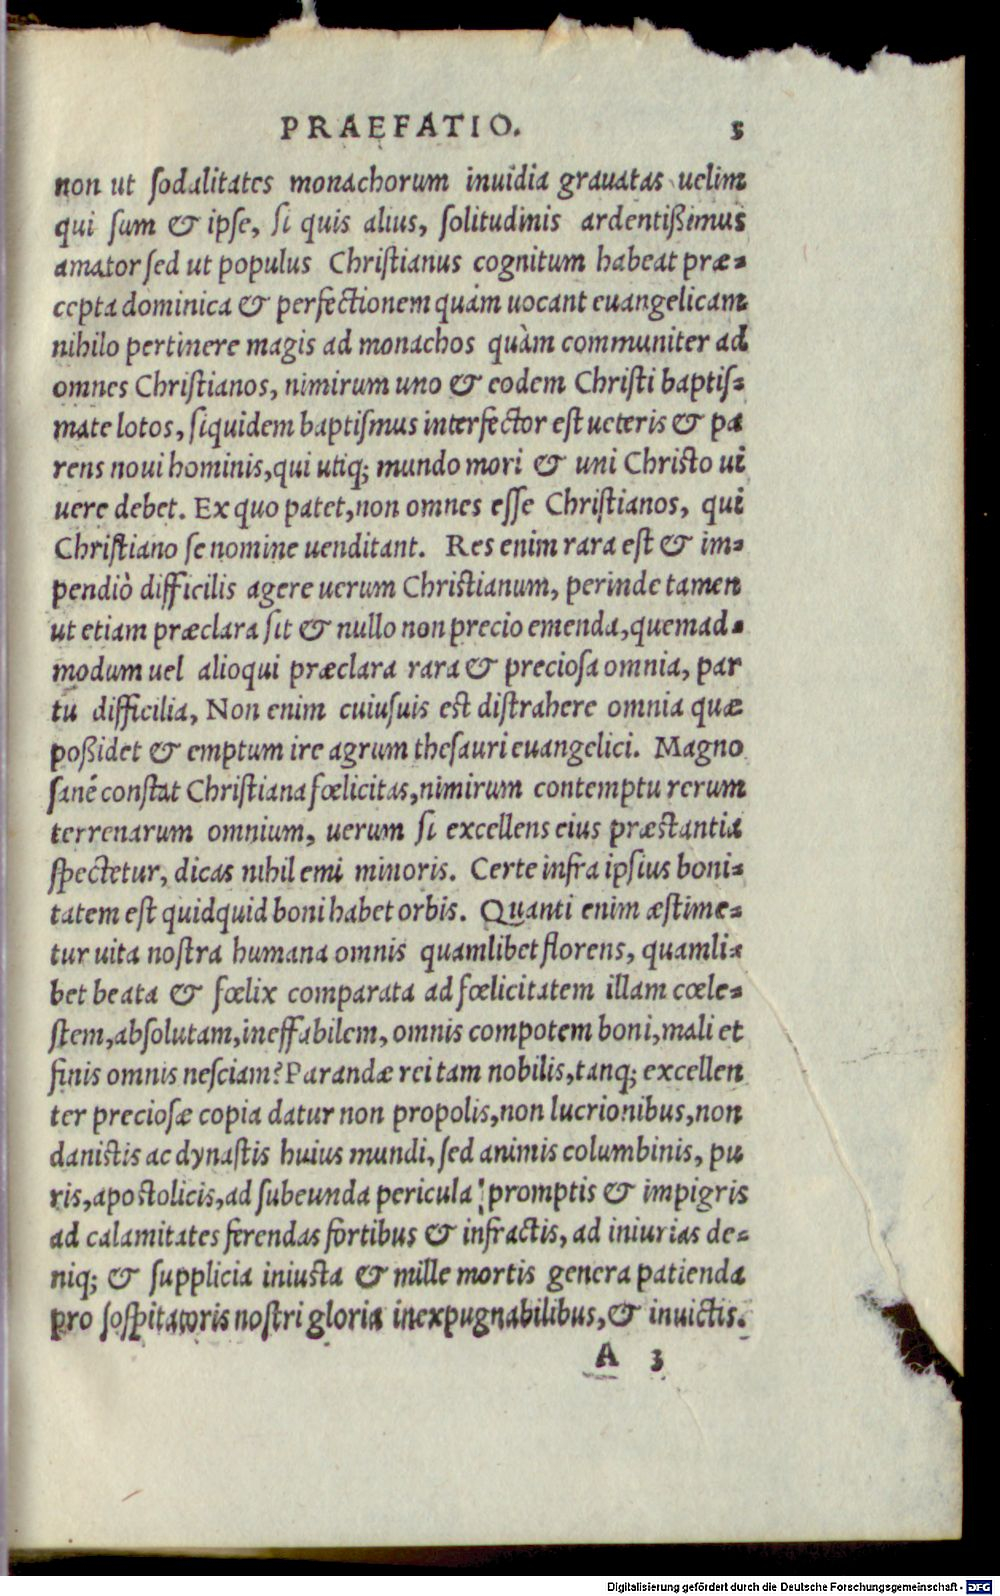 PRAEFATIO. 5
non ut ſodalitates monachorum inuidia grauatas uelim
qui ſum & ipſe, ſi quis alius, ſolitudinis ardentißimus
amator ſed ut populus Chriſtianus cognitum habeat præ-
cepta dominica & perfectionem quám uocant euangelicam
nihilo pertinere magis ad monachos quàm communiter ad
omnes Chriſtianos, nimirum uno & eodem Chriſti baptiſ-
mate lotos, ſiquidem baptiſmus interfector eſt ueteris & pa
rens noui hominis, qui utiq; mundo mori & uni Chriſto ui
uere debet. Ex quo patet, non omnes eſſe Chriſtianos, qui
Chriſtiano ſe nomine uenditant. Res enim rara eſt & im-
pendiò difficilis agere uerum Chriſtianum, perinde tamen
ut etiam præclara ſit & nullo non precio emenda, quemad-
modum uel alioqui præclara rara & precioſa omnia, par
tu difficilia, Non enim cuiuſuis eſt diſtrahere omnia quæ
poßidet & emptum ire agrum theſauri euangelici. Magno
ſané conſtat Chriſtiana fœlicitas, nimirum contemptu rerum
terrenarum omnium, uerum ſi excellens eius præſtantia
ſpectetur, dicas nihil emi minoris. Certe infra ipſius boni-
tatem eſt quidquid boni habet orbis. Quanti enim æſtime-
tur uita noſtra humana omnis quamlibet florens, quamli-
bet beata & fœlix comparata ad fœlicitatem illam cœle-
ſtem, abſolutam, ineffabilem, omnis compotem boni, mali et
finis omnis neſciam? Parandæ rei tam nobilis, tanq; excellen
ter precioſæ copia datur non propolis, non lucrionibus, non
daniſtis ac dynaſtis huius mundi, ſed animis columbinis, pu
ris, apoſtolicis, ad ſubeunda pericula promptis & impigris
ad calamitates ferendas fortibus & infractis, ad iniurias de-
niq; & ſupplicia iniuſta & mille mortis genera patienda
pro ſoſpitatoris noſtri gloria inexpugnabilibus, & inuictis.
A 3
Digitalisierung gefördert durch die Deutsche Forschungsgemeinschaft - DFG